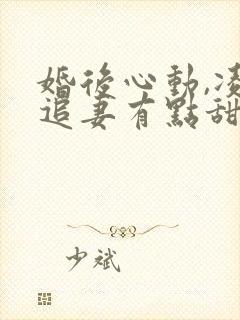 婚後心動,凌
追妻有點甜
少斌